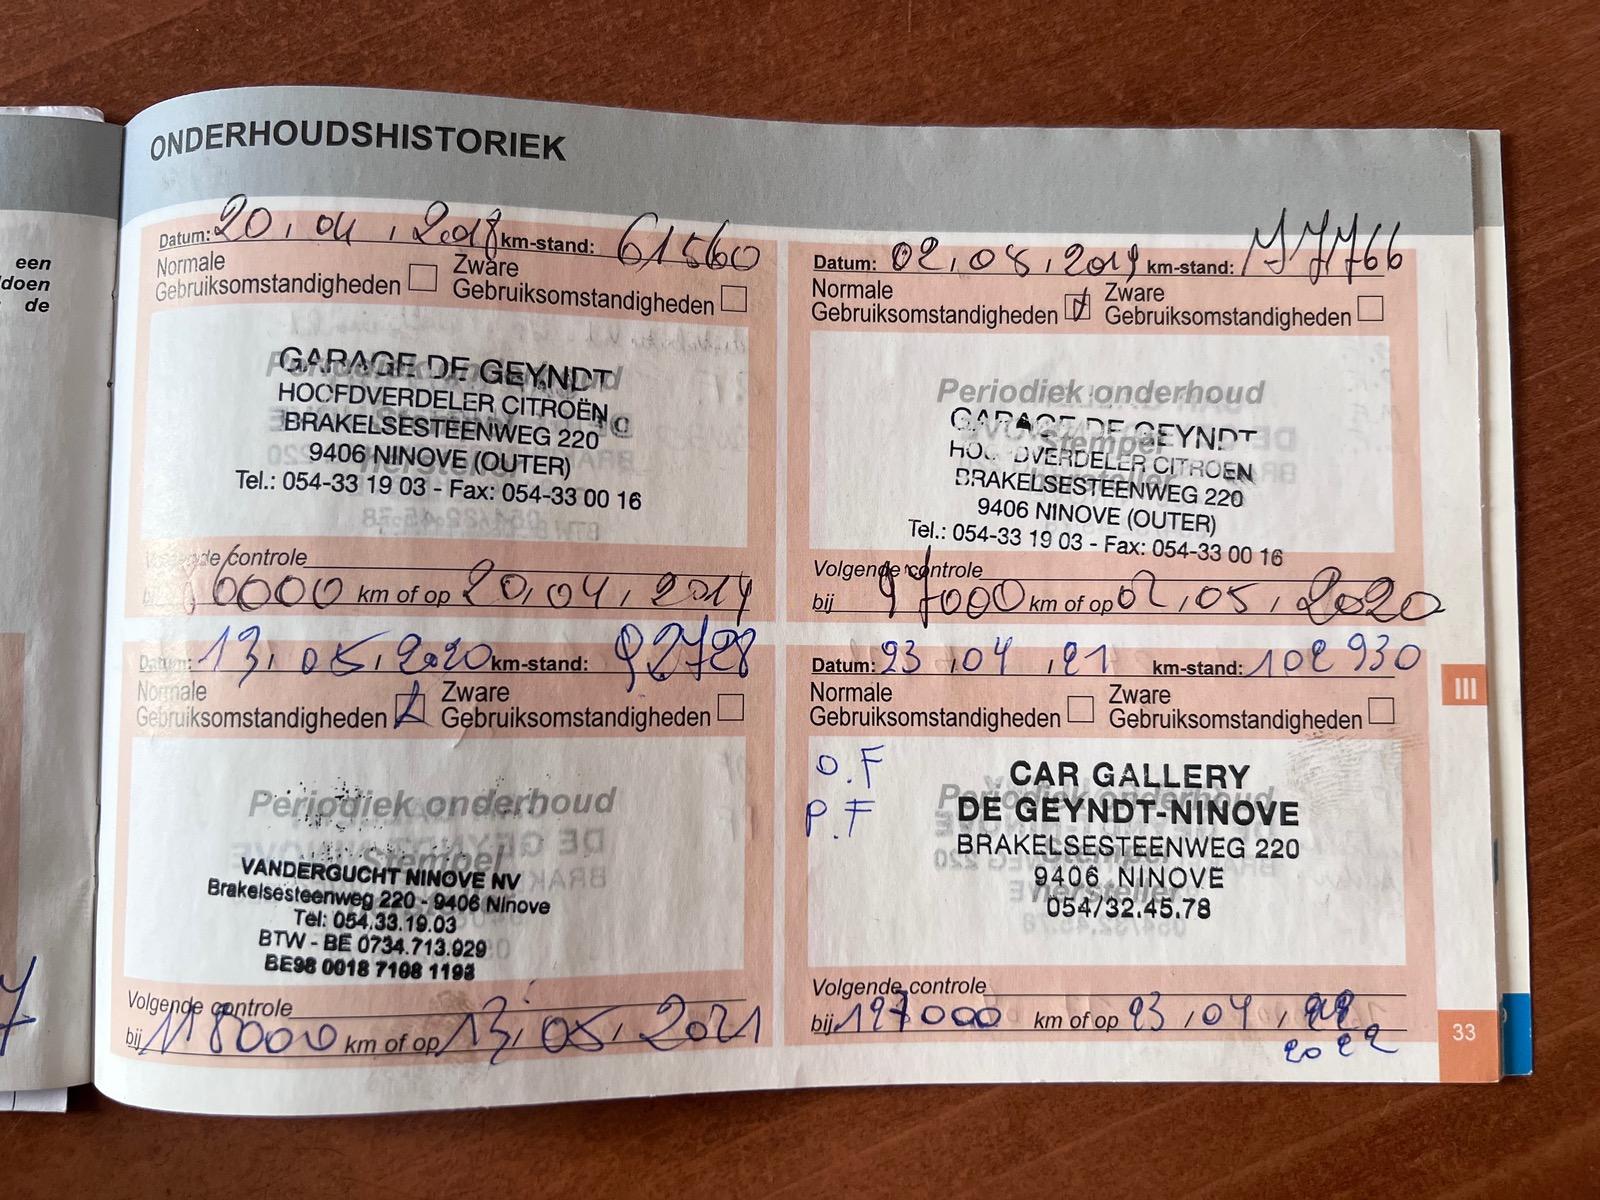 een
doen
de
ONDERHOUDSHISTORIEK
Datum: 20, 04, 2018 km-stand: 61560
Normale Gebruiksomstandigheden
Zware Gebruiksomstandigheden
GARAGE DE GEYNDT
HOOFDVERDELER CITROËN
BRAKELSESTEENWEG 220
9406 NINOVE (OUTER)
Tel.: 054-33 19 03 - Fax: 054-33 00 16
Volgende controle
km of op 20, 04, 2019
Datum: 02, 05, 2019 km-stand: 77766
Normale Gebruiksomstandigheden
Zware Gebruiksomstandigheden
Periodiek onderhoud
Stempel
GARAGE DE GEYNDT
HOOFDVERDELER CITROEN
BRAKELSESTEENWEG 220
9406 NINOVE (OUTER)
Tel.: 054-33 19 03 - Fax: 054-33 00 16
Volgende controle
bij 97000 km of op 02, 05, 2020
Datum: 13, 05, 2020 km-stand: 92728
Normale Gebruiksomstandigheden
Zware Gebruiksomstandigheden
Periodiek onderhoud
Stempel
VANDERGUCHT NINOVE NV
Brakelsesteenweg 220 - 9406 Ninove
Tel: 054.33.19.03
BTW - BE 0734.713.929
BE98 0018 7108 1193
Volgende controle
bij 118000 km of op 13, 05, 2021
Datum: 23, 04, 21 km-stand: 102 930
Normale Gebruiksomstandigheden
Zware Gebruiksomstandigheden
O.F
P.F
Periodiek onderhoud
Stempel
hersteller
CAR GALLERY
DE GEYNDT-NINOVE
BRAKELSESTEENWEG 220
9406 NINOVE
054/32.45.78
Volgende controle
bij 127000 km of op 23, 04, 22
2022
III
33